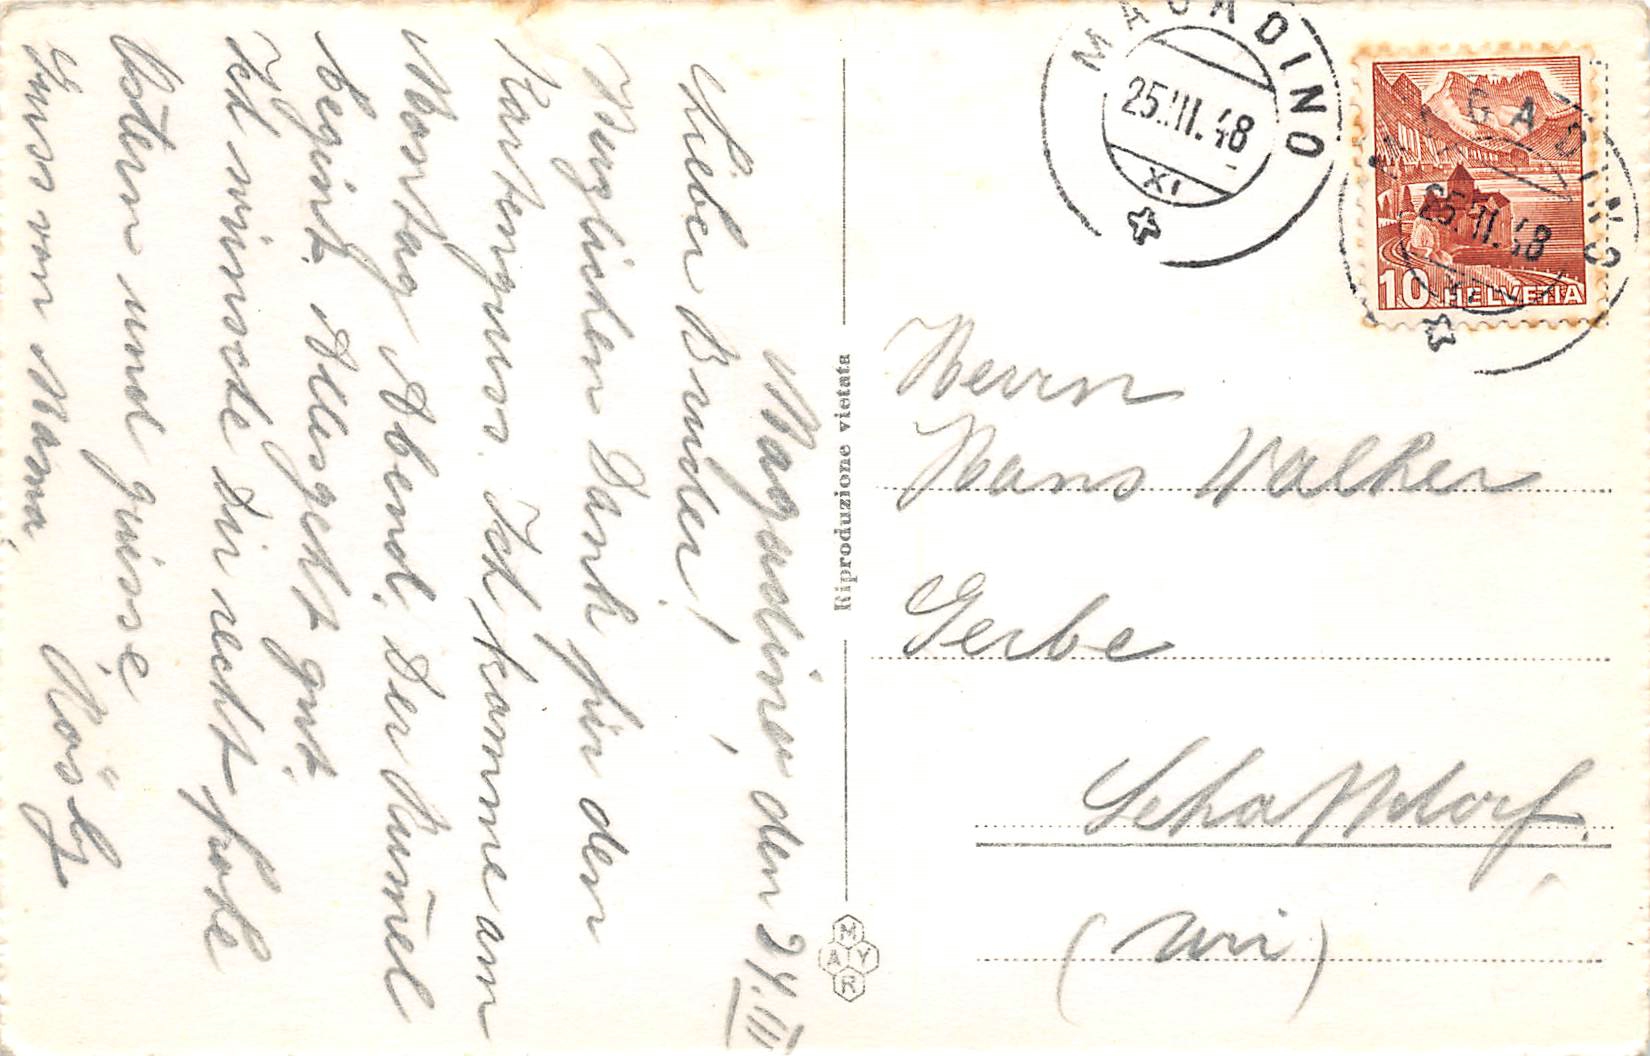 Magadino, den 24. III
Lieber Bruder!
Herzlichen Dank für den
Kartengruss Ich kamme am
Mostag Abend. Der Rum̅el
begint. Allesgeht gut.
Ich wünsche Dir recht frohe
Ostern und grüsse
Gruss von Mamá Rösly
Riprodu­zione vietata
MAYR
MAGADINO
25.III.48
XI
MAGADINO
25.III.48
10 HELVETIA
Herrn
Hans Walker
Gerbe
Schattdorf.
(Uri)